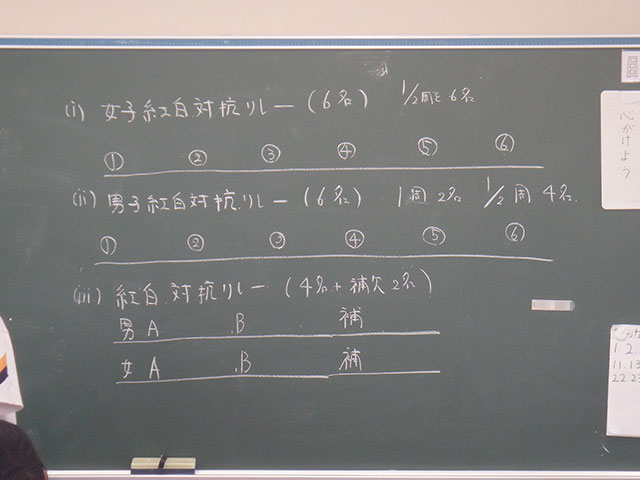 (i) 女子紅白対抗リレー (6名) 1/2周を6名
① ② ③ ④ ⑤ ⑥
(ii) 男子紅白対抗リレー (6名) 1周2名 1/2周4名
① ② ③ ④ ⑤ ⑥
(iii) 紅白対抗リレー (4名+補欠2名)
男 A B 補
女 A B 補
心がけよう
1 2
11.13
22.23